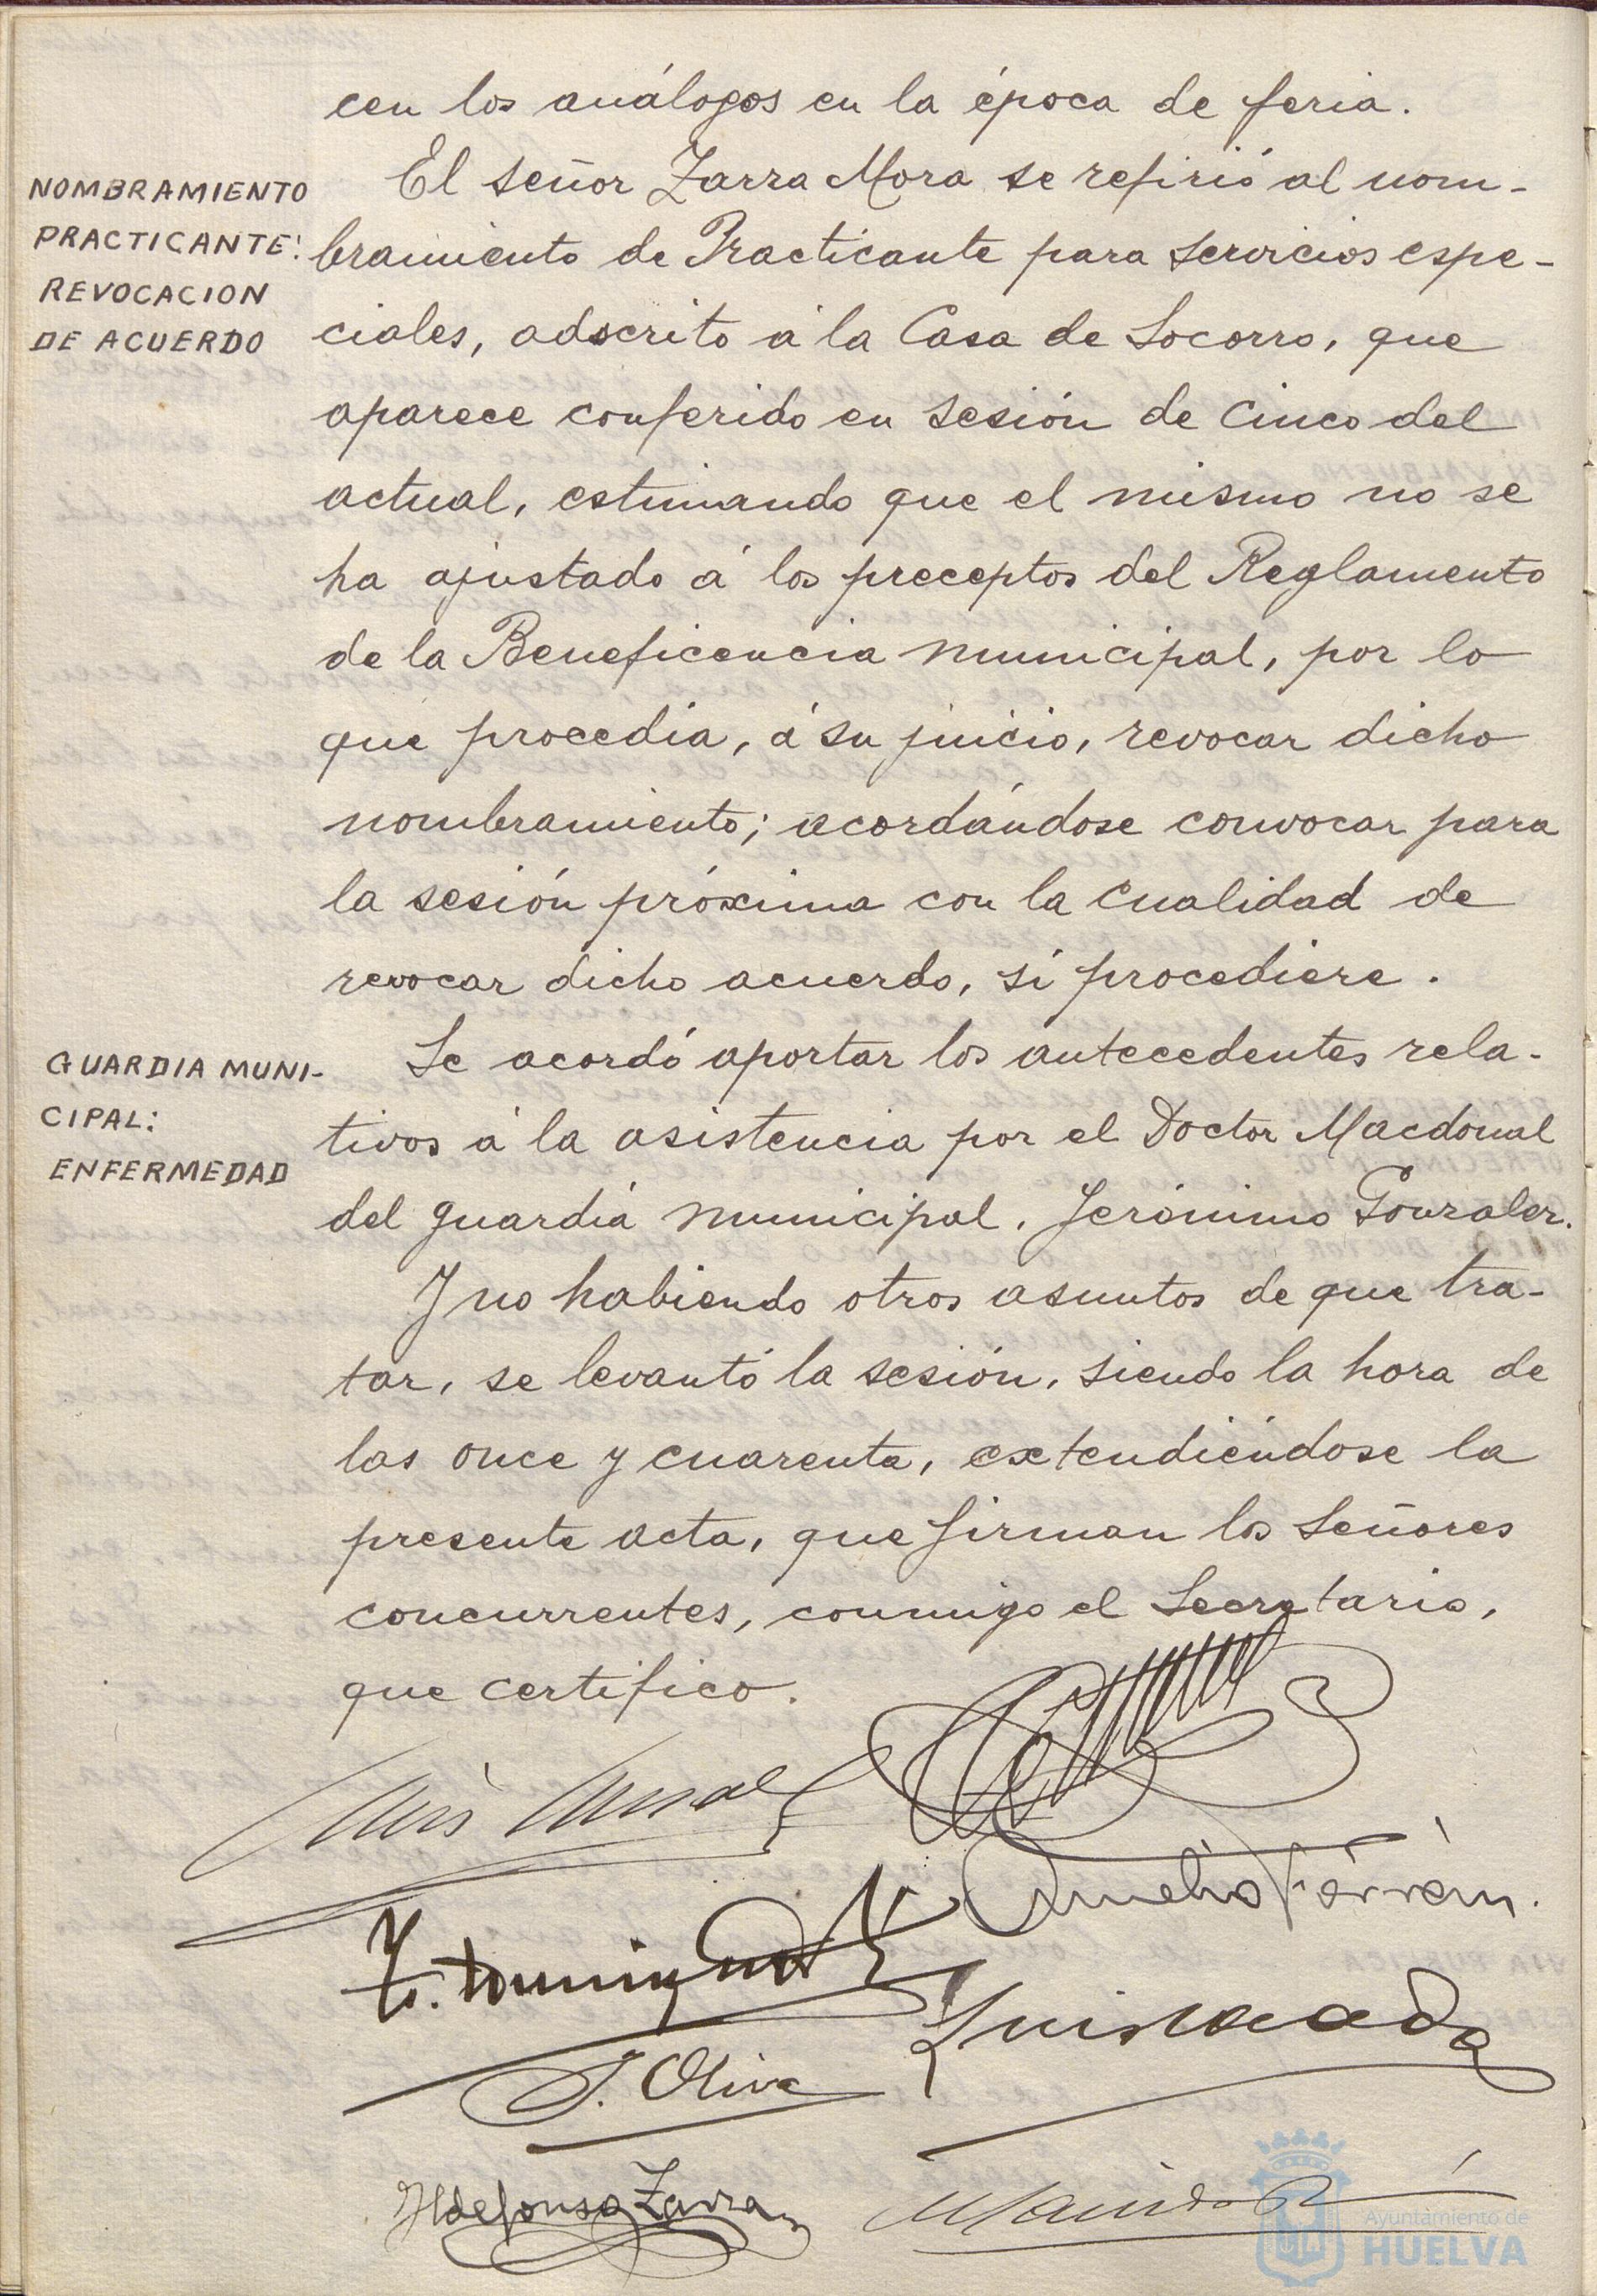 cen los análogos en la época de feria.
NOMBRAMIENTO
PRACTICANTE:
REVOCACION
DE ACUERDO
El señor Zarza Mora se refirió al nom-
bramiento de Practicante para servicios espe-
ciales, adscrito á la Casa de Socorro, que
aparece conferido en sesión de cinco del
actual, estimando que el mismo no se
ha ajustado á los preceptos del Reglamento
de la Beneficencia municipal, por lo
que procedia, á su juicio, revocar dicho
nombramiento; acordándose convocar para
la sesión próxima con la cualidad de
revocar dicho acuerdo, si procediere.
GUARDIA MUNI-
CIPAL:
ENFERMEDAD
Se acordó aportar los antecedentes rela-
tivos á la asistencia por el Doctor Macdonal
del guardia municipal, Jerónimo Gonzalez.
Y no habiendo otros asuntos de que tra-
tar, se levantó la sesión, siendo la hora de
las once y cuarenta, extendiéndose la
presente acta, que firman los Señores
concurrentes, conmigo el Secretario,
que certifico.
J. Oliva
Quismada
Ildefonso Zarza
Ayuntamiento de
HUELVA